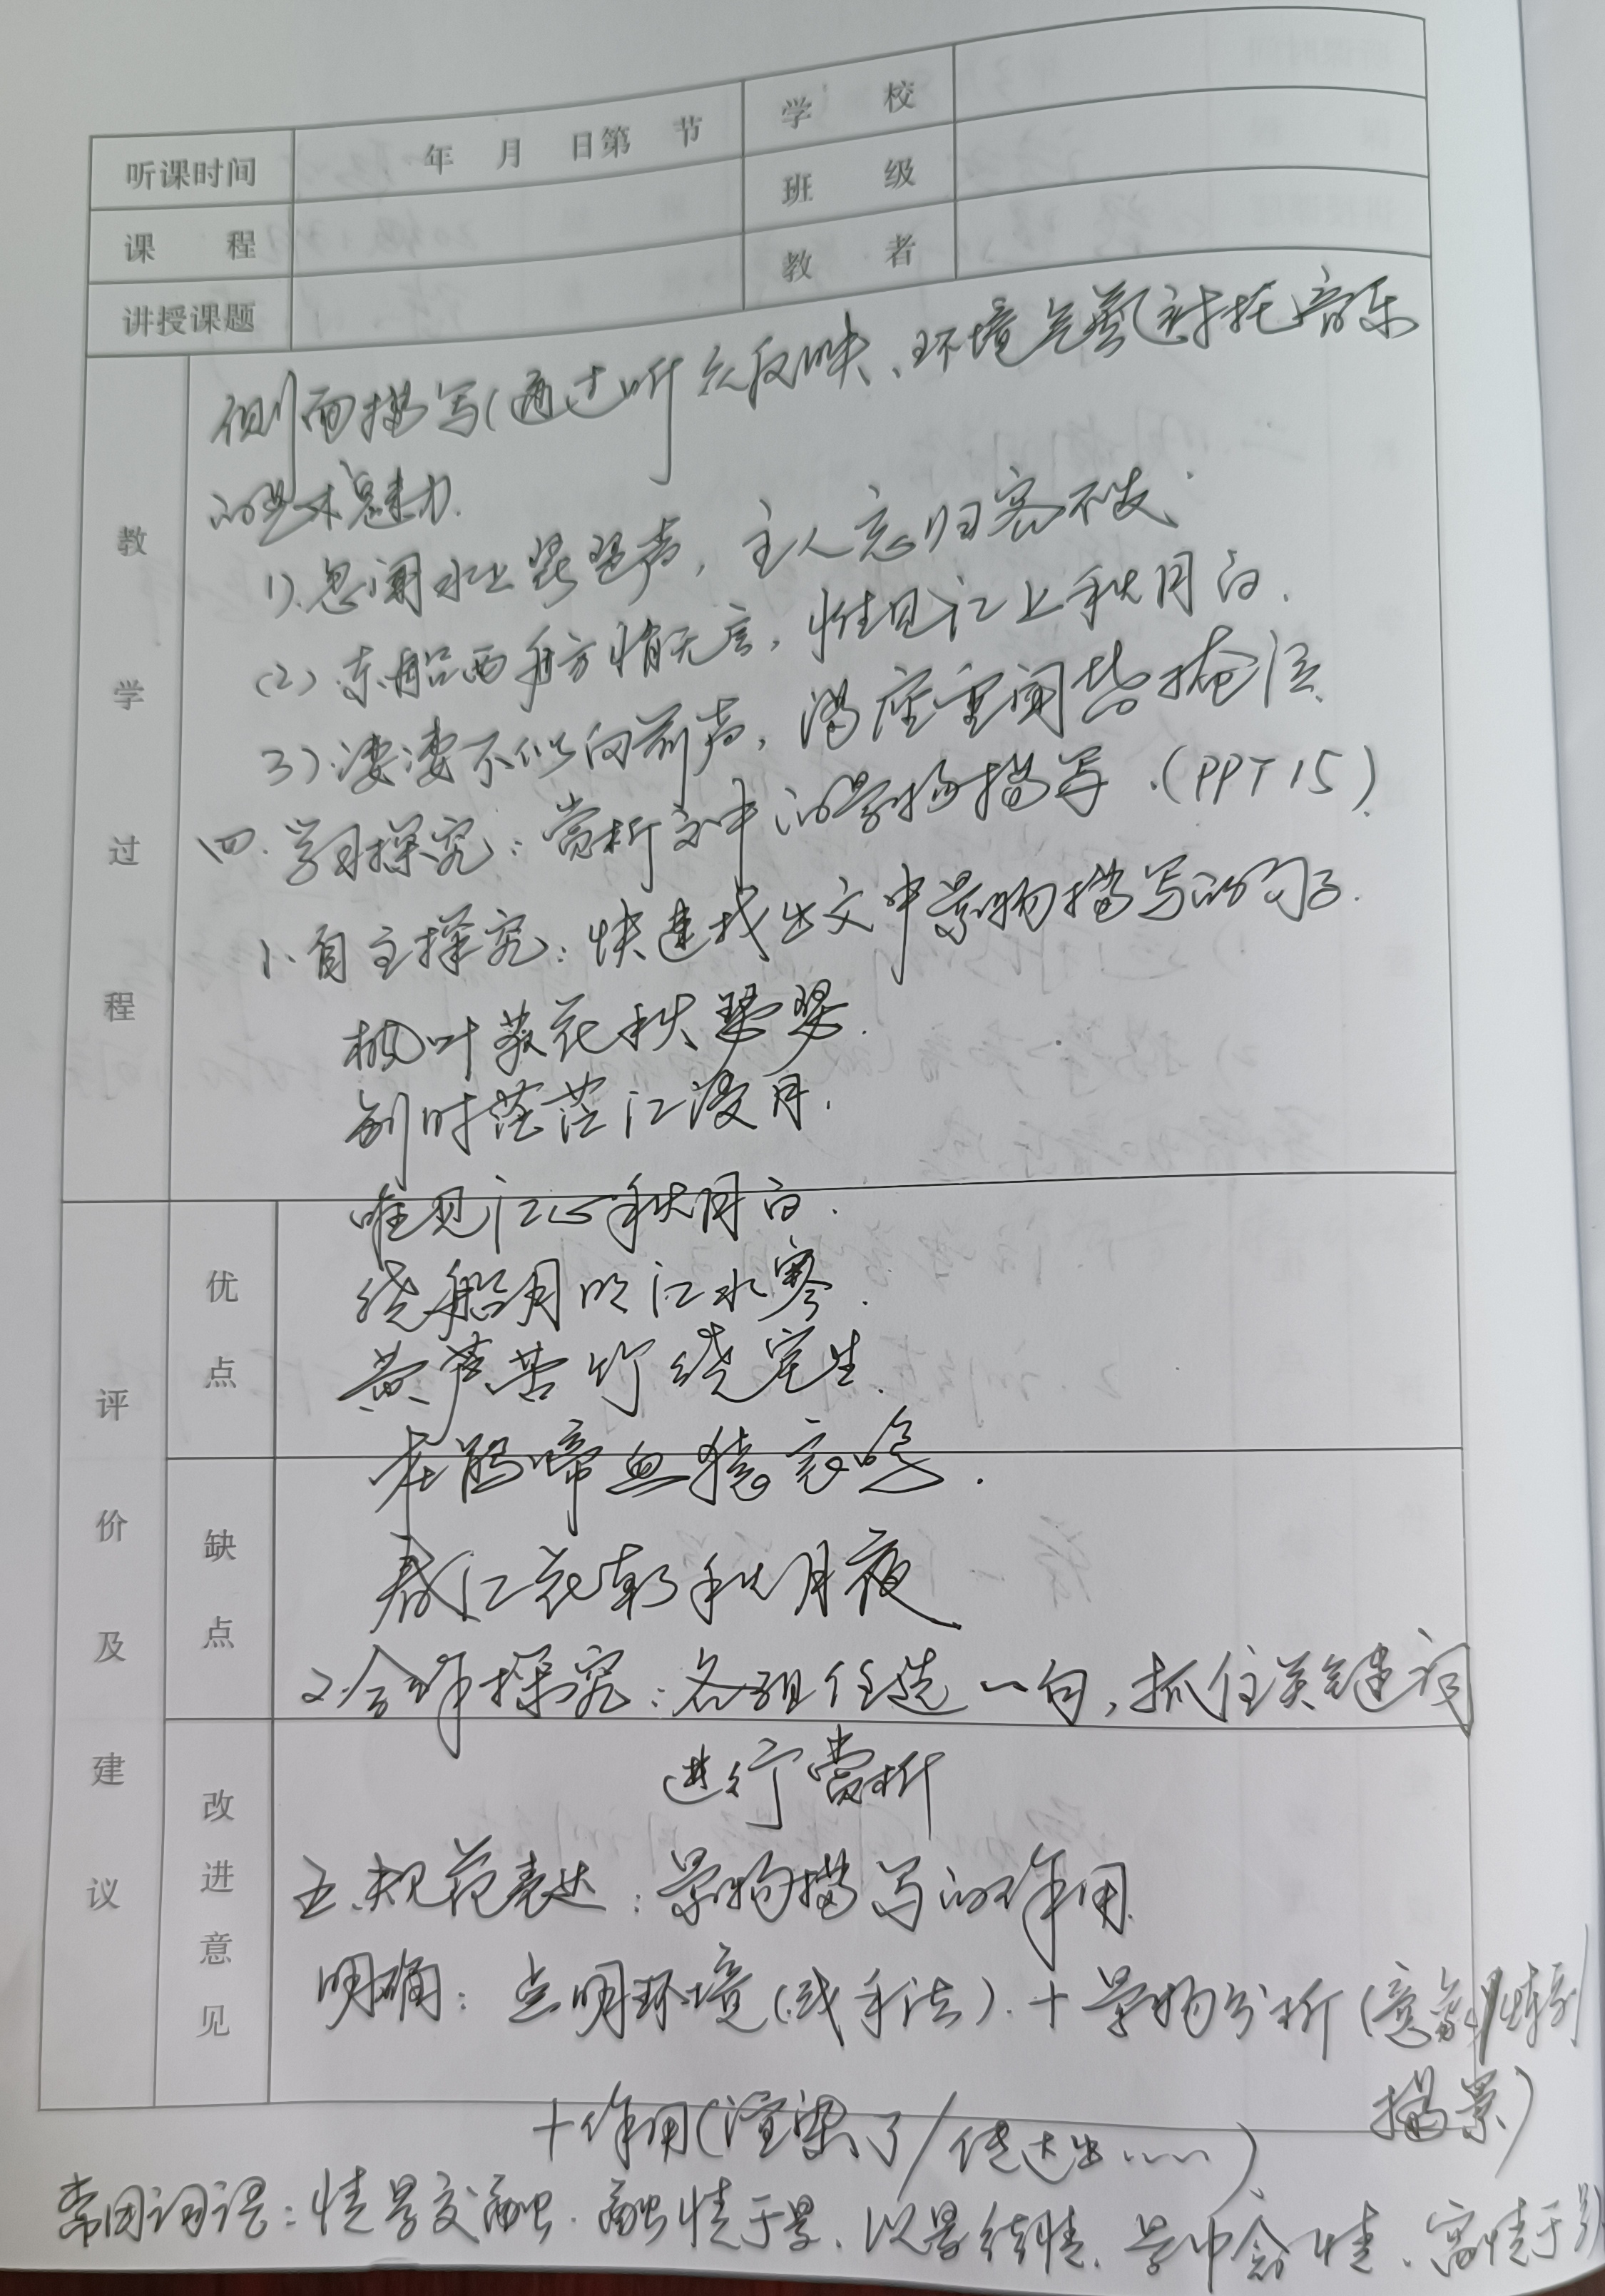 听课时间 年 月 日第 节 学 校
课 程 班 级
讲授课题 教 者
教学过程
侧面描写(通过听众反映、环境气氛)衬托音乐
的艺术魅力.
1).忽闻水上琵琶声,主人忘归客不发.
(2).东船西舫悄无言,惟见江上秋月白.
3).凄凄不似向前声,满座重闻皆掩泣.
四.学习探究:赏析文中的景物描写.(PPT15)
1.自主探究:快速找出文中景物描写的句子.
枫叶荻花秋瑟瑟.
别时茫茫江浸月.
唯见江心秋月白.
绕船月明江水寒.
黄芦苦竹绕宅生.
杜鹃啼血猿哀鸣.
春江花朝秋月夜
2.合作探究:各组任选一句,抓住关键词
进行赏析
五.规范表达:景物描写的作用.
明确:点明环境(或手法).+景物分析(意象
描景)
+作用(渲染了/传达出……).
常用词语:情景交融.融情于景.以景结情.景中含情.寓情于景
评价及建议
优点
缺点
改进意见